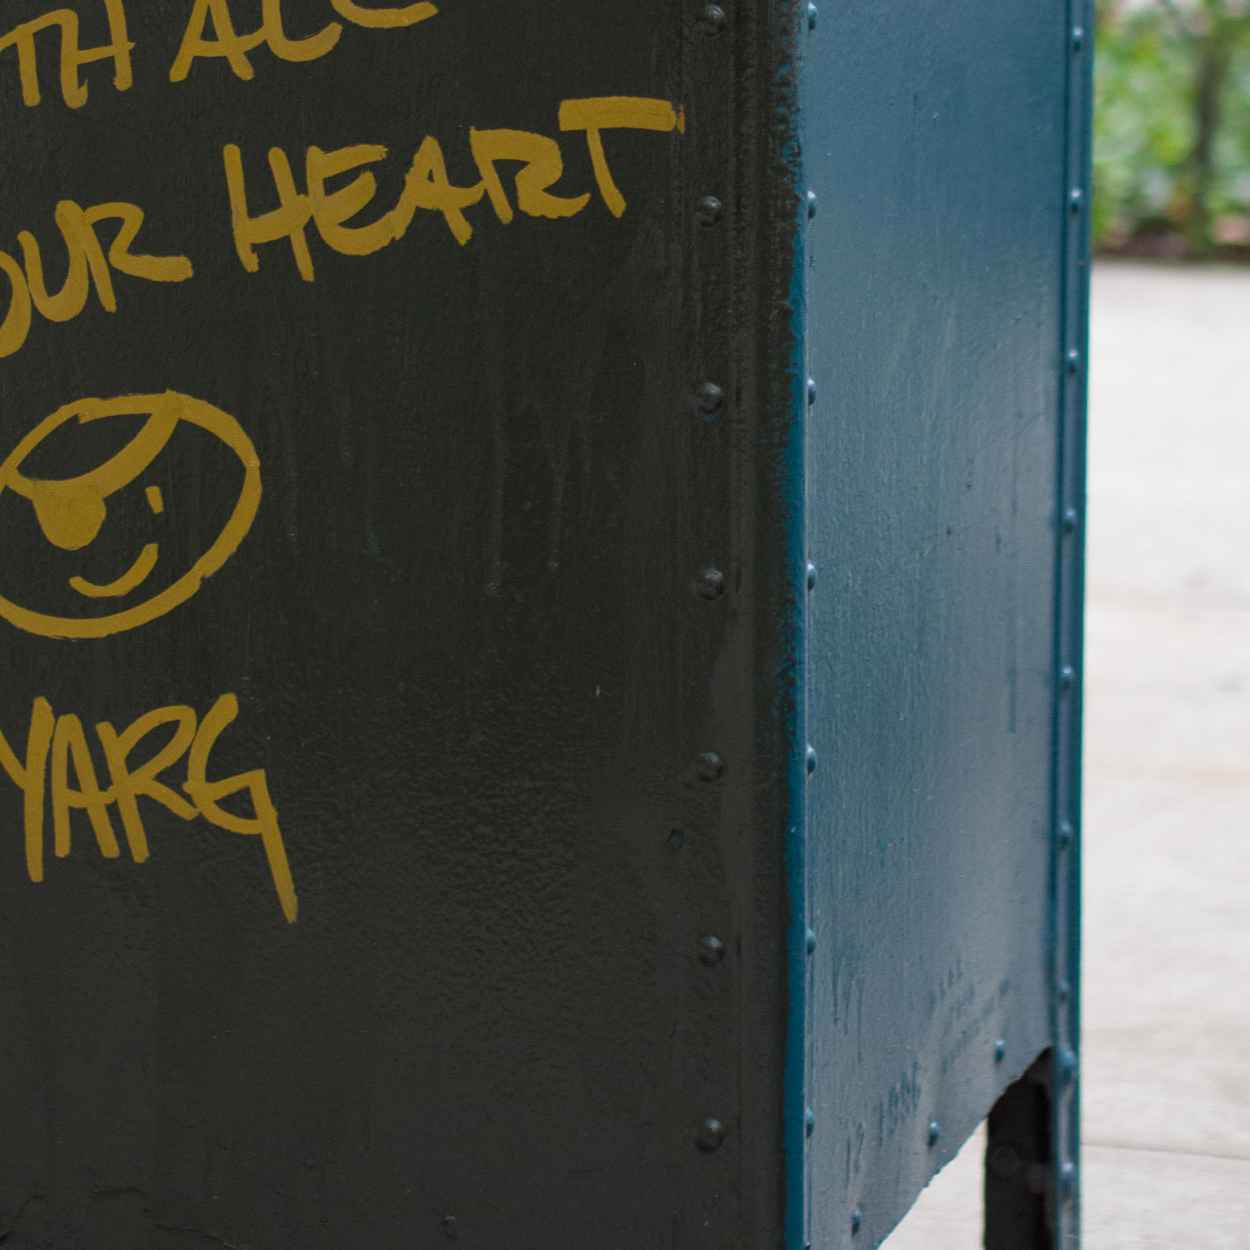 TH ALL
OUR HEART
YARG